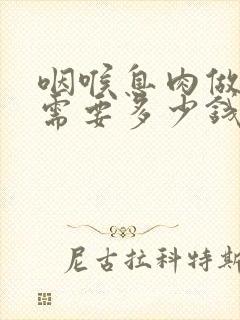 咽喉息肉做
需要多少钱
尼古拉科特斯